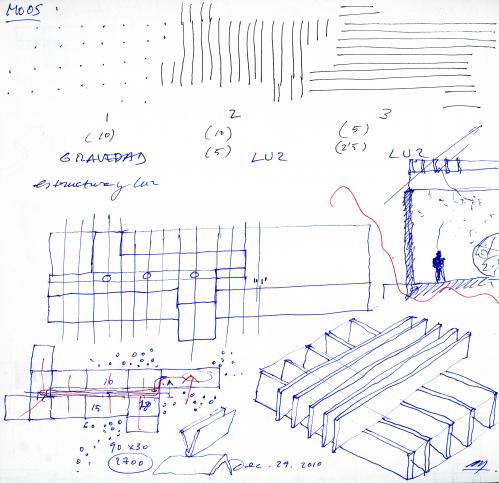 MOOS
1 2 3
(10) (10) (5)
(5) (2'5)
GRAVEDAD LUZ LUZ
estructura y luz
16
15 18
90 x 30
2700
Dec. 29. 2010